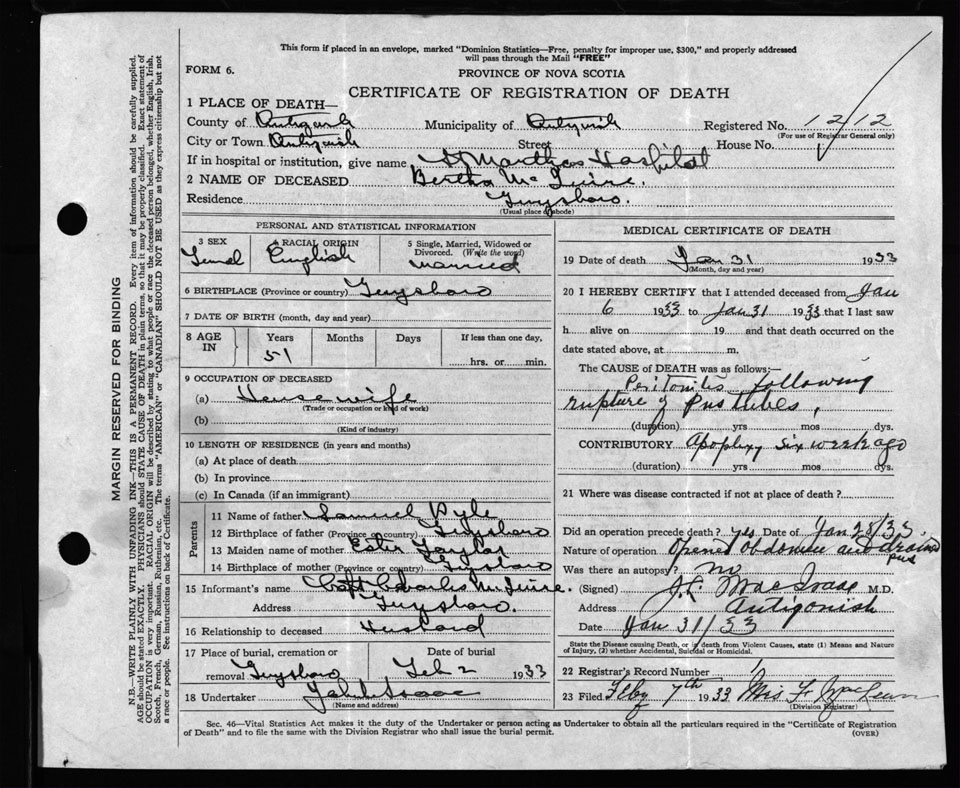 This form if placed in an envelope, marked "Dominion Statistics—Free, penalty for improper use, $300," and properly addressed
will pass through the Mail "FREE"
FORM 6.
PROVINCE OF NOVA SCOTIA
CERTIFICATE OF REGISTRATION OF DEATH
1 PLACE OF DEATH—
County of Antigonish Municipality of Antigonish Registered No. 1212
(For use of Registrar General only)
City or Town Antigonish Street House No.
If in hospital or institution, give name St Marthas Hospital
2 NAME OF DECEASED Bertha McGuire.
Residence Guysboro.
(Usual place of abode)
PERSONAL AND STATISTICAL INFORMATION
3 SEX
4 RACIAL ORIGIN English
5 Single, Married, Widowed or Divorced. (Write the word) Married
6 BIRTHPLACE (Province or country) Guysboro
7 DATE OF BIRTH (month, day and year)
8 AGE IN
Years Months Days If less than one day,
51 hrs. or min.
9 OCCUPATION OF DECEASED
(a) House wife
(Trade or occupation or kind of work)
(b)
(Kind of industry)
10 LENGTH OF RESIDENCE (in years and months)
(a) At place of death
(b) In province
(c) In Canada (if an immigrant)
Parents
11 Name of father Samuel Pyle
12 Birthplace of father (Province or country) Guysboro
13 Maiden name of mother Ester Taylor
14 Birthplace of mother (Province or country) Guysboro
15 Informant's name Capt Charles McGuire.
Address Guysboro.
16 Relationship to deceased Husband
17 Place of burial, cremation or Date of burial
removal Guysboro Feb 2 1933
18 Undertaker
(Name and address)
MEDICAL CERTIFICATE OF DEATH
19 Date of death Jan 31 1933
(Month, day and year)
20 I HEREBY CERTIFY that I attended deceased from Jan
6 1933 to Jan 31 1933 that I last saw
h alive on 19 and that death occurred on
date stated above, at m.
The CAUSE OF DEATH was as follows:—
Peritonitis following
rupture of Pus tubes,
(duration) yrs mos dys.
CONTRIBUTORY Apoplexy six week ago
(duration) yrs mos dys.
21 Where was disease contracted if not at place of death?
Did an operation precede death? yes Date of Jan 28/33
Nature of operation Opened abdomen and drain
pus
Was there an autopsy? no
(Signed) MacIsaac M.D.
Address Antigonish
Date Jan 31/33
State the Disease causing Death, or in death from Violent Causes, state (1) Means and Nature
of Injury, (2) whether Accidental, Suicidal or Homicidal.
22 Registrar's Record Number 1
23 Filed Feby 7th 1933 Mrs
(Division Registrar)
Sec. 46—Vital Statistics Act makes it the duty of the Undertaker or person acting as Undertaker to obtain all the particulars required in the "Certificate of Registration
of Death" and to file the same with the Division Registrar who shall issue the burial permit.
(OVER)
MARGIN RESERVED FOR BINDING
N.B.—WRITE PLAINLY WITH UNFADING INK—THIS IS A PERMANENT RECORD. Every item of information should be carefully supplied.
AGE should be stated EXACTLY. PHYSICIANS should STATE CAUSE OF DEATH in plain terms, so that it may be properly classified. Exact statement of
OCCUPATION is very important. RACIAL ORIGIN will be described by stating to what people or race the deceased person belonged, whether English, Irish,
Scotch, French, German, Russian, Ruthenian, etc. The terms "AMERICAN" or "CANADIAN" SHOULD NOT BE USED as they express citizenship but not
a race or people. See instructions on back of Certificate.